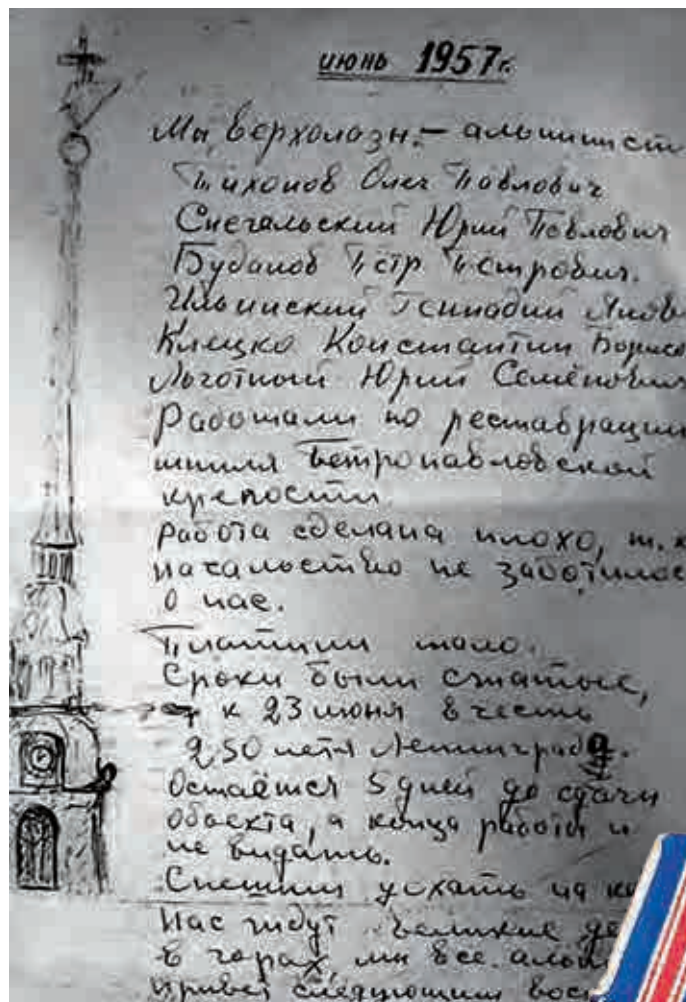 июнь 1957г.
Мы, верхолазы. – альпинист
Тихонов Олег Павлович
Снегальский Юрий Павлович
Буданов Пётр Петрович.
Ильинский Геннадий Яковл
Клецко Константин Борисо
Льготный Юрий Семёнович
Работали по реставрации
шпиля Петропавловской
крепости.
работа сделана плохо, т.к
началоство не заботилос
о нас.
Платили мало.
Сроки были сжатые,
к 23 июня в честь
250 летя Ленинграда.
Остаётся 5 дней до сдачи
объекта, а конца работы и
не видать.
Спешим уехать на
Нас ждут великие
в горах, мы все
привет следующим